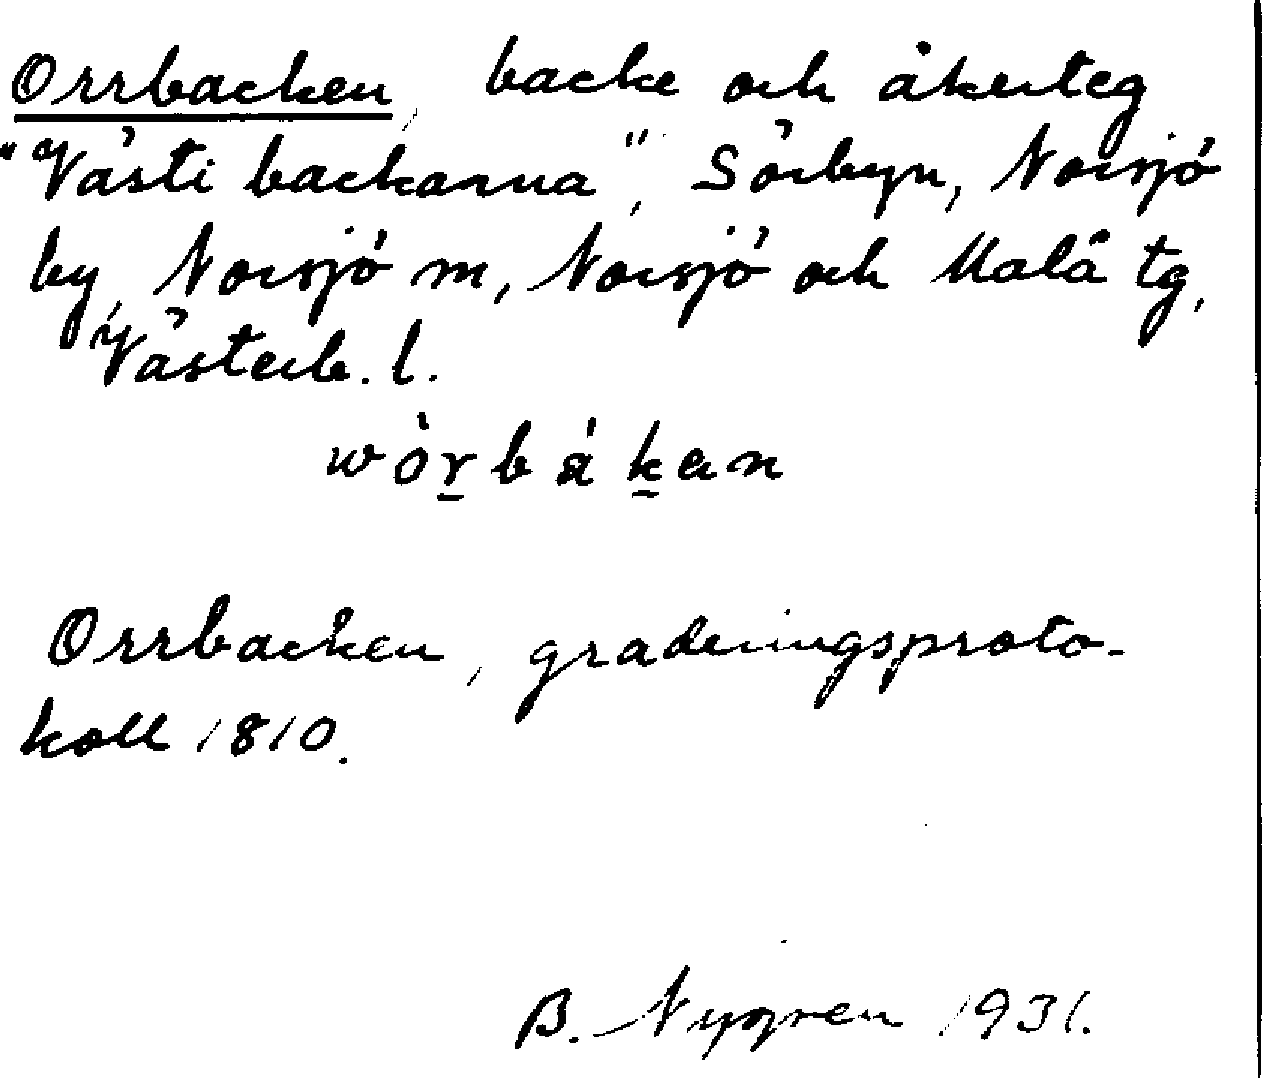 Orrbacken, backe och åkerteg
"Västi backanna", Sörbyn, Norsjö
by, Norsjö m, Norsjö och Malå tg,
Västerb. l.
wòr̠bákan
Orrbacken, graderingsproto-
koll 1810.
B. Nygren 1931.